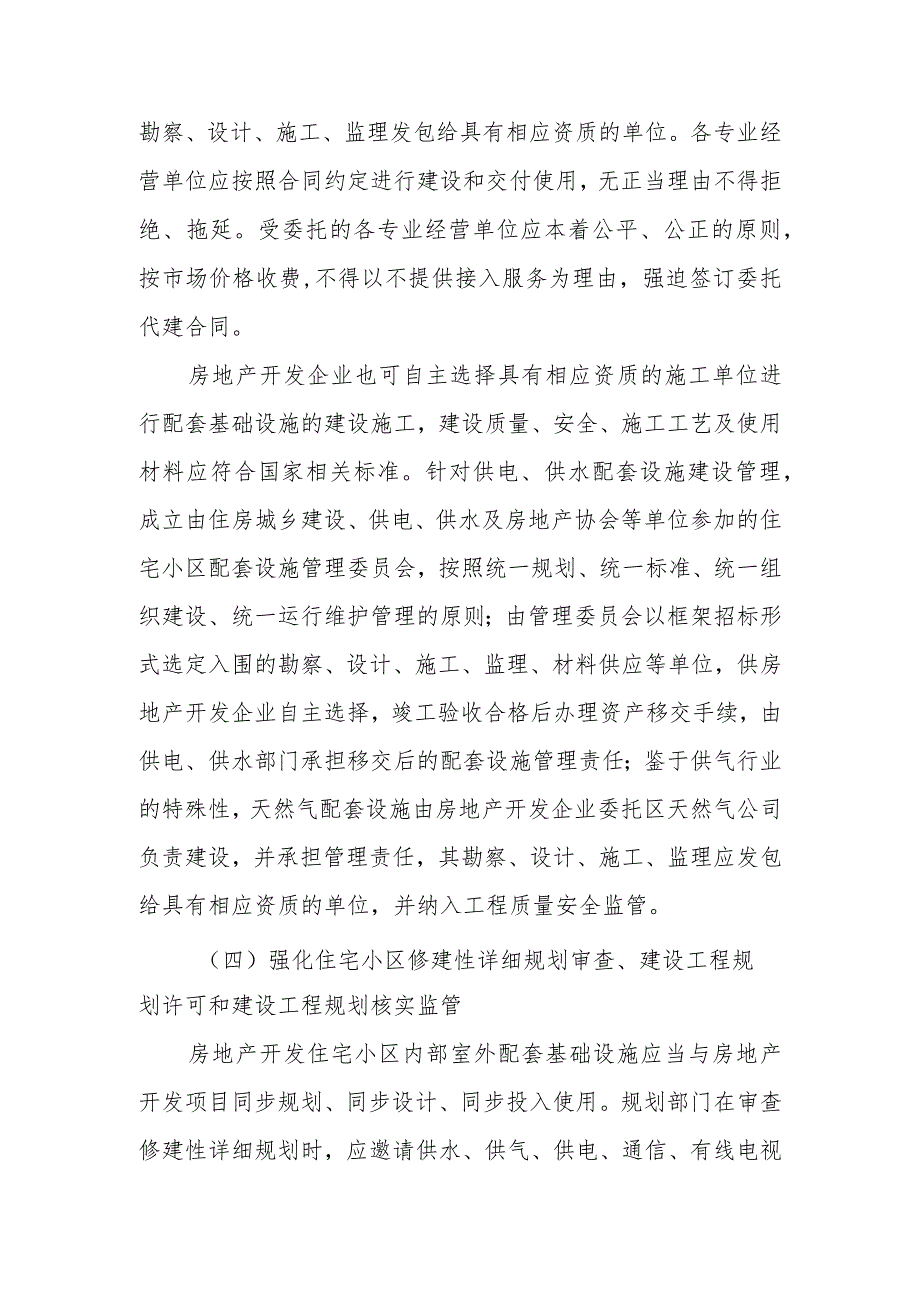 勘察、设计、施工、监理发包给具有相应资质的单位。各专业经
营单位应按照合同约定进行建设和交付使用，无正当理由不得拒
绝、拖延。受委托的各专业经营单位应本着公平、公正的原则，
按市场价格收费,不得以不提供接入服务为理由，强迫签订委托
代建合同。
房地产开发企业也可自主选择具有相应资质的施工单位进
行配套基础设施的建设施工，建设质量、安全、施工工艺及使用
材料应符合国家相关标准。针对供电、供水配套设施建设管理，
成立由住房城乡建设、供电、供水及房地产协会等单位参加的住
宅小区配套设施管理委员会，按照统一规划、统一标准、统一组
织建设、统一运行维护管理的原则；由管理委员会以框架招标形
式选定入围的勘察、设计、施工、监理、材料供应等单位，供房
地产开发企业自主选择，竣工验收合格后办理资产移交手续，由
供电、供水部门承担移交后的配套设施管理责任；鉴于供气行业
的特殊性，天然气配套设施由房地产开发企业委托区天然气公司
负责建设，并承担管理责任，其勘察、设计、施工、监理应发包
给具有相应资质的单位，并纳入工程质量安全监管。
（四）强化住宅小区修建性详细规划审查、建设工程规
划许可和建设工程规划核实监管
房地产开发住宅小区内部室外配套基础设施应当与房地产
开发项目同步规划、同步设计、同步投入使用。规划部门在审查
修建性详细规划时，应邀请供水、供气、供电、通信、有线电视